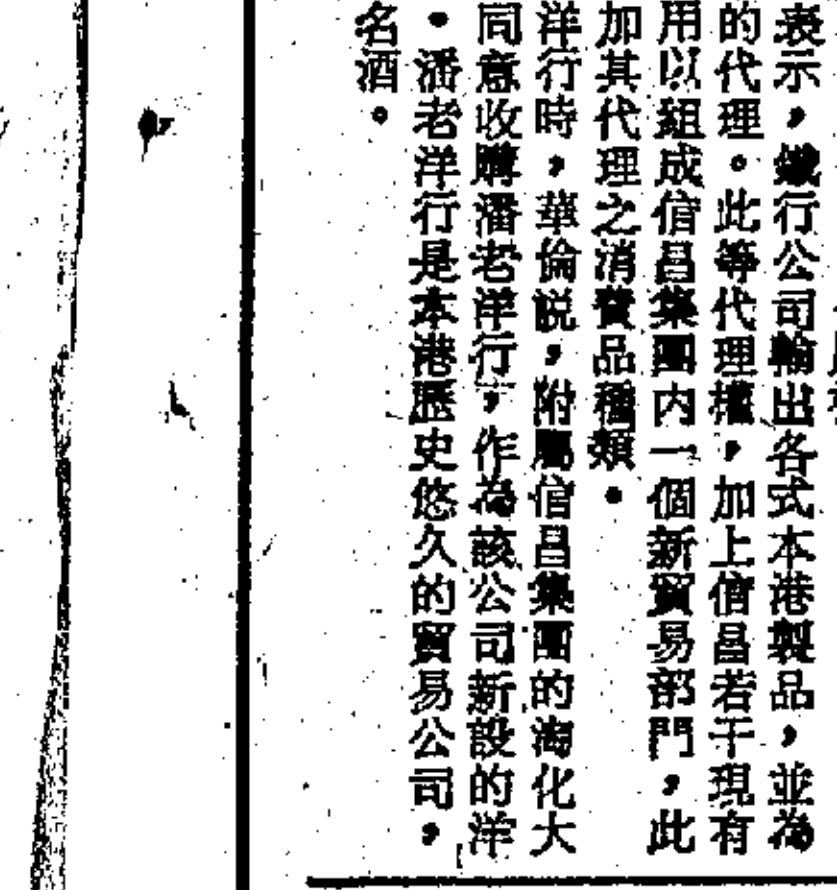 表示，蟻行公司輸出各式本港製品，並為
的代理。此等代理權，加上信昌若干現有
用以組成信昌集團内一個新貿易部門，此
加其代理之消費品種類。
洋行時，華倫説，附屬信昌集團的淘化大
同意收購潘老洋行，作為該公司新設的洋
。潘老洋行是本港歷史悠久的貿易公司，
名酒。